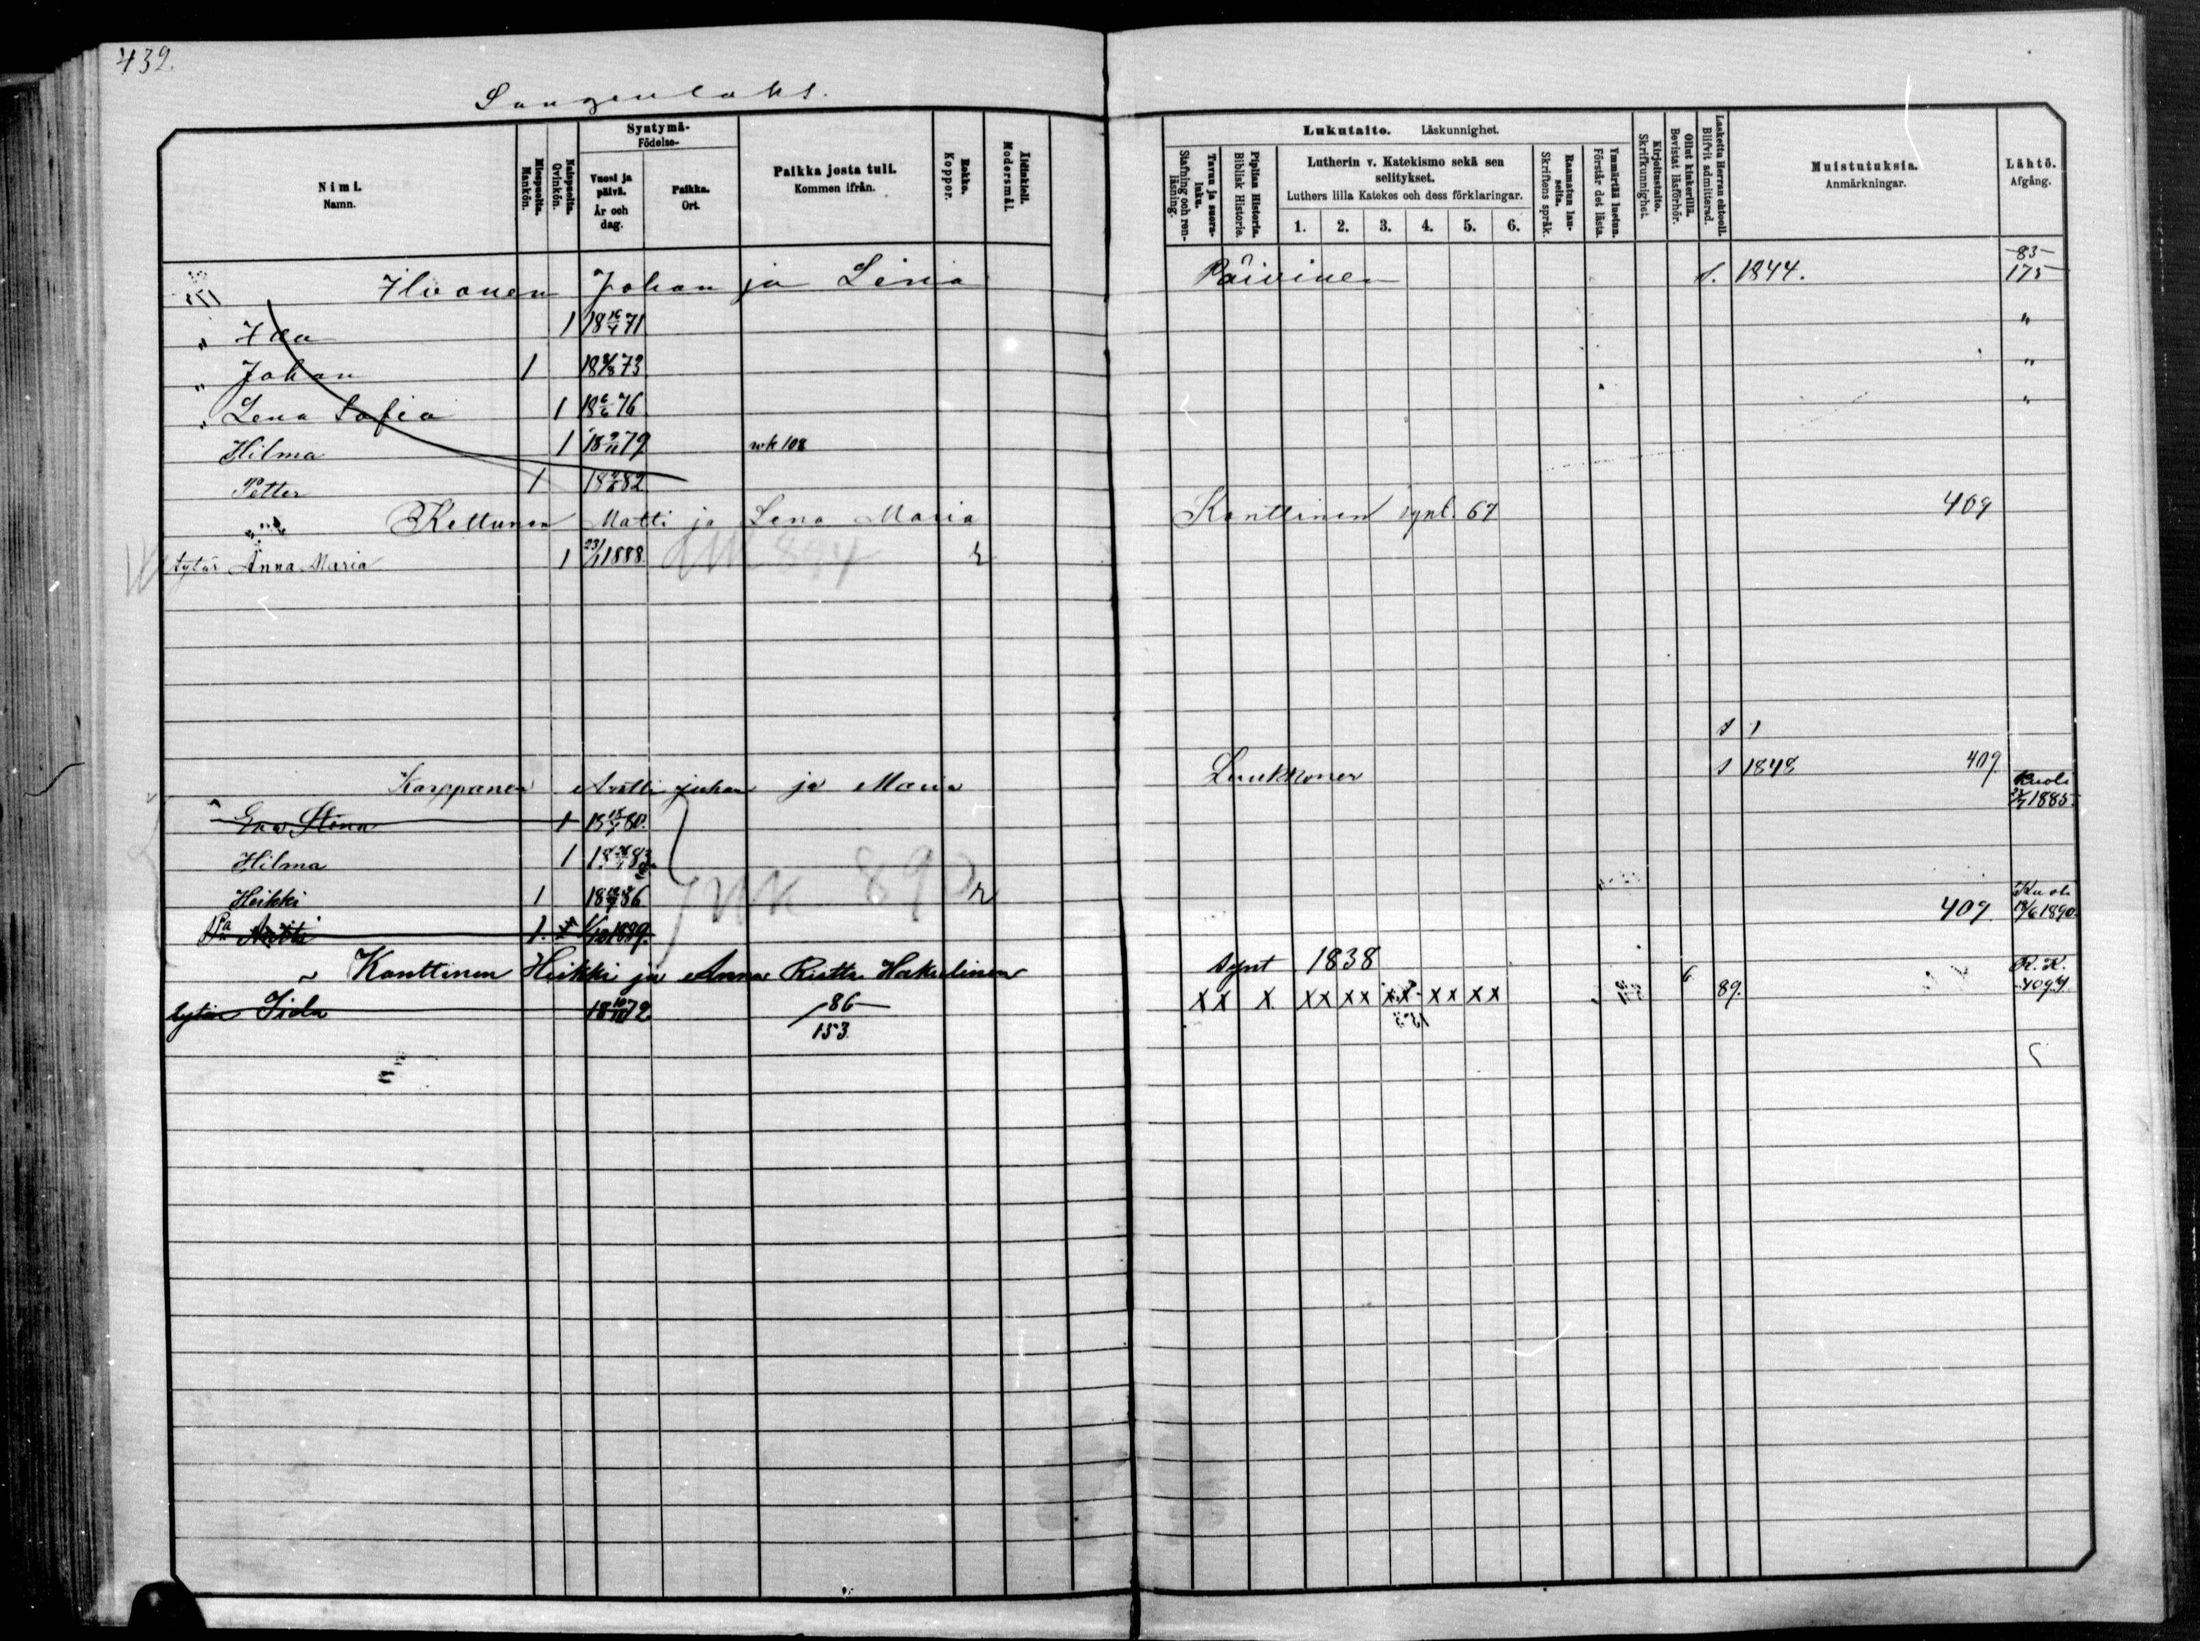 432.
Saugenlaks.
Nimi.
Namn.
Miespuolia.
Mankön.
Naispuolia.
Qvinkön.
Syntymä-
Födelse-
Vuosi ja päivä.
År och dag.
Paikka.
Ort.
Paikka josta tuli.
Kommen ifrån.
Rokko.
Koppor.
Äidinkieli.
Modersmål.
Lukutaito. Läskunnighet.
Tavun ja suoraluku.
Stafning och renläsning.
Piplian Historia.
Biblisk Historie.
Lutherin v. Katekismo sekä sen selitykset.
Luthers lilla Katekes och dess förklaringar.
1. 2. 3. 4. 5. 6.
Raamatun lauseita.
Skriftens språk.
Ymmärtää luetun.
Förstår det lästa.
Kirjoitustaito.
Skrifkunnighet.
Ollut kinkerillä.
Bevistat läsförhör.
Laskettu Herran ehtooll.
Blifvit admitterad.
Muistutuksia.
Anmärkningar.
Lähtö.
Afgång.
Ilvonen Johan ja Lena Päivinen s. 1844. 83 175
" Ida 1 71 "
" Johan 1 73 "
" Lena Sofia 1 18 6/6 76 "
Hilma 1 79 wk 108
Petter 1 82
Kettunen Matti ja Lena Maria Kanttinen synt. 67 409
tytär Anna Maria 1 1888 r
s 1
Karppanen Antti Juhan ja Maria Luukkonen s 1848 409.
Eva Stina 1 80. Kuoli 1885.
Hilma 1 83
Heikki 1 86 r
Antti 1. 1889. 409. Kuoli 1890.
Kanttinen Heikki ja Anna Riitta Hakulinen synt 1838
tytär Iida 72 86 153 XX X XX XX XX XX XX 6 89. R.K.